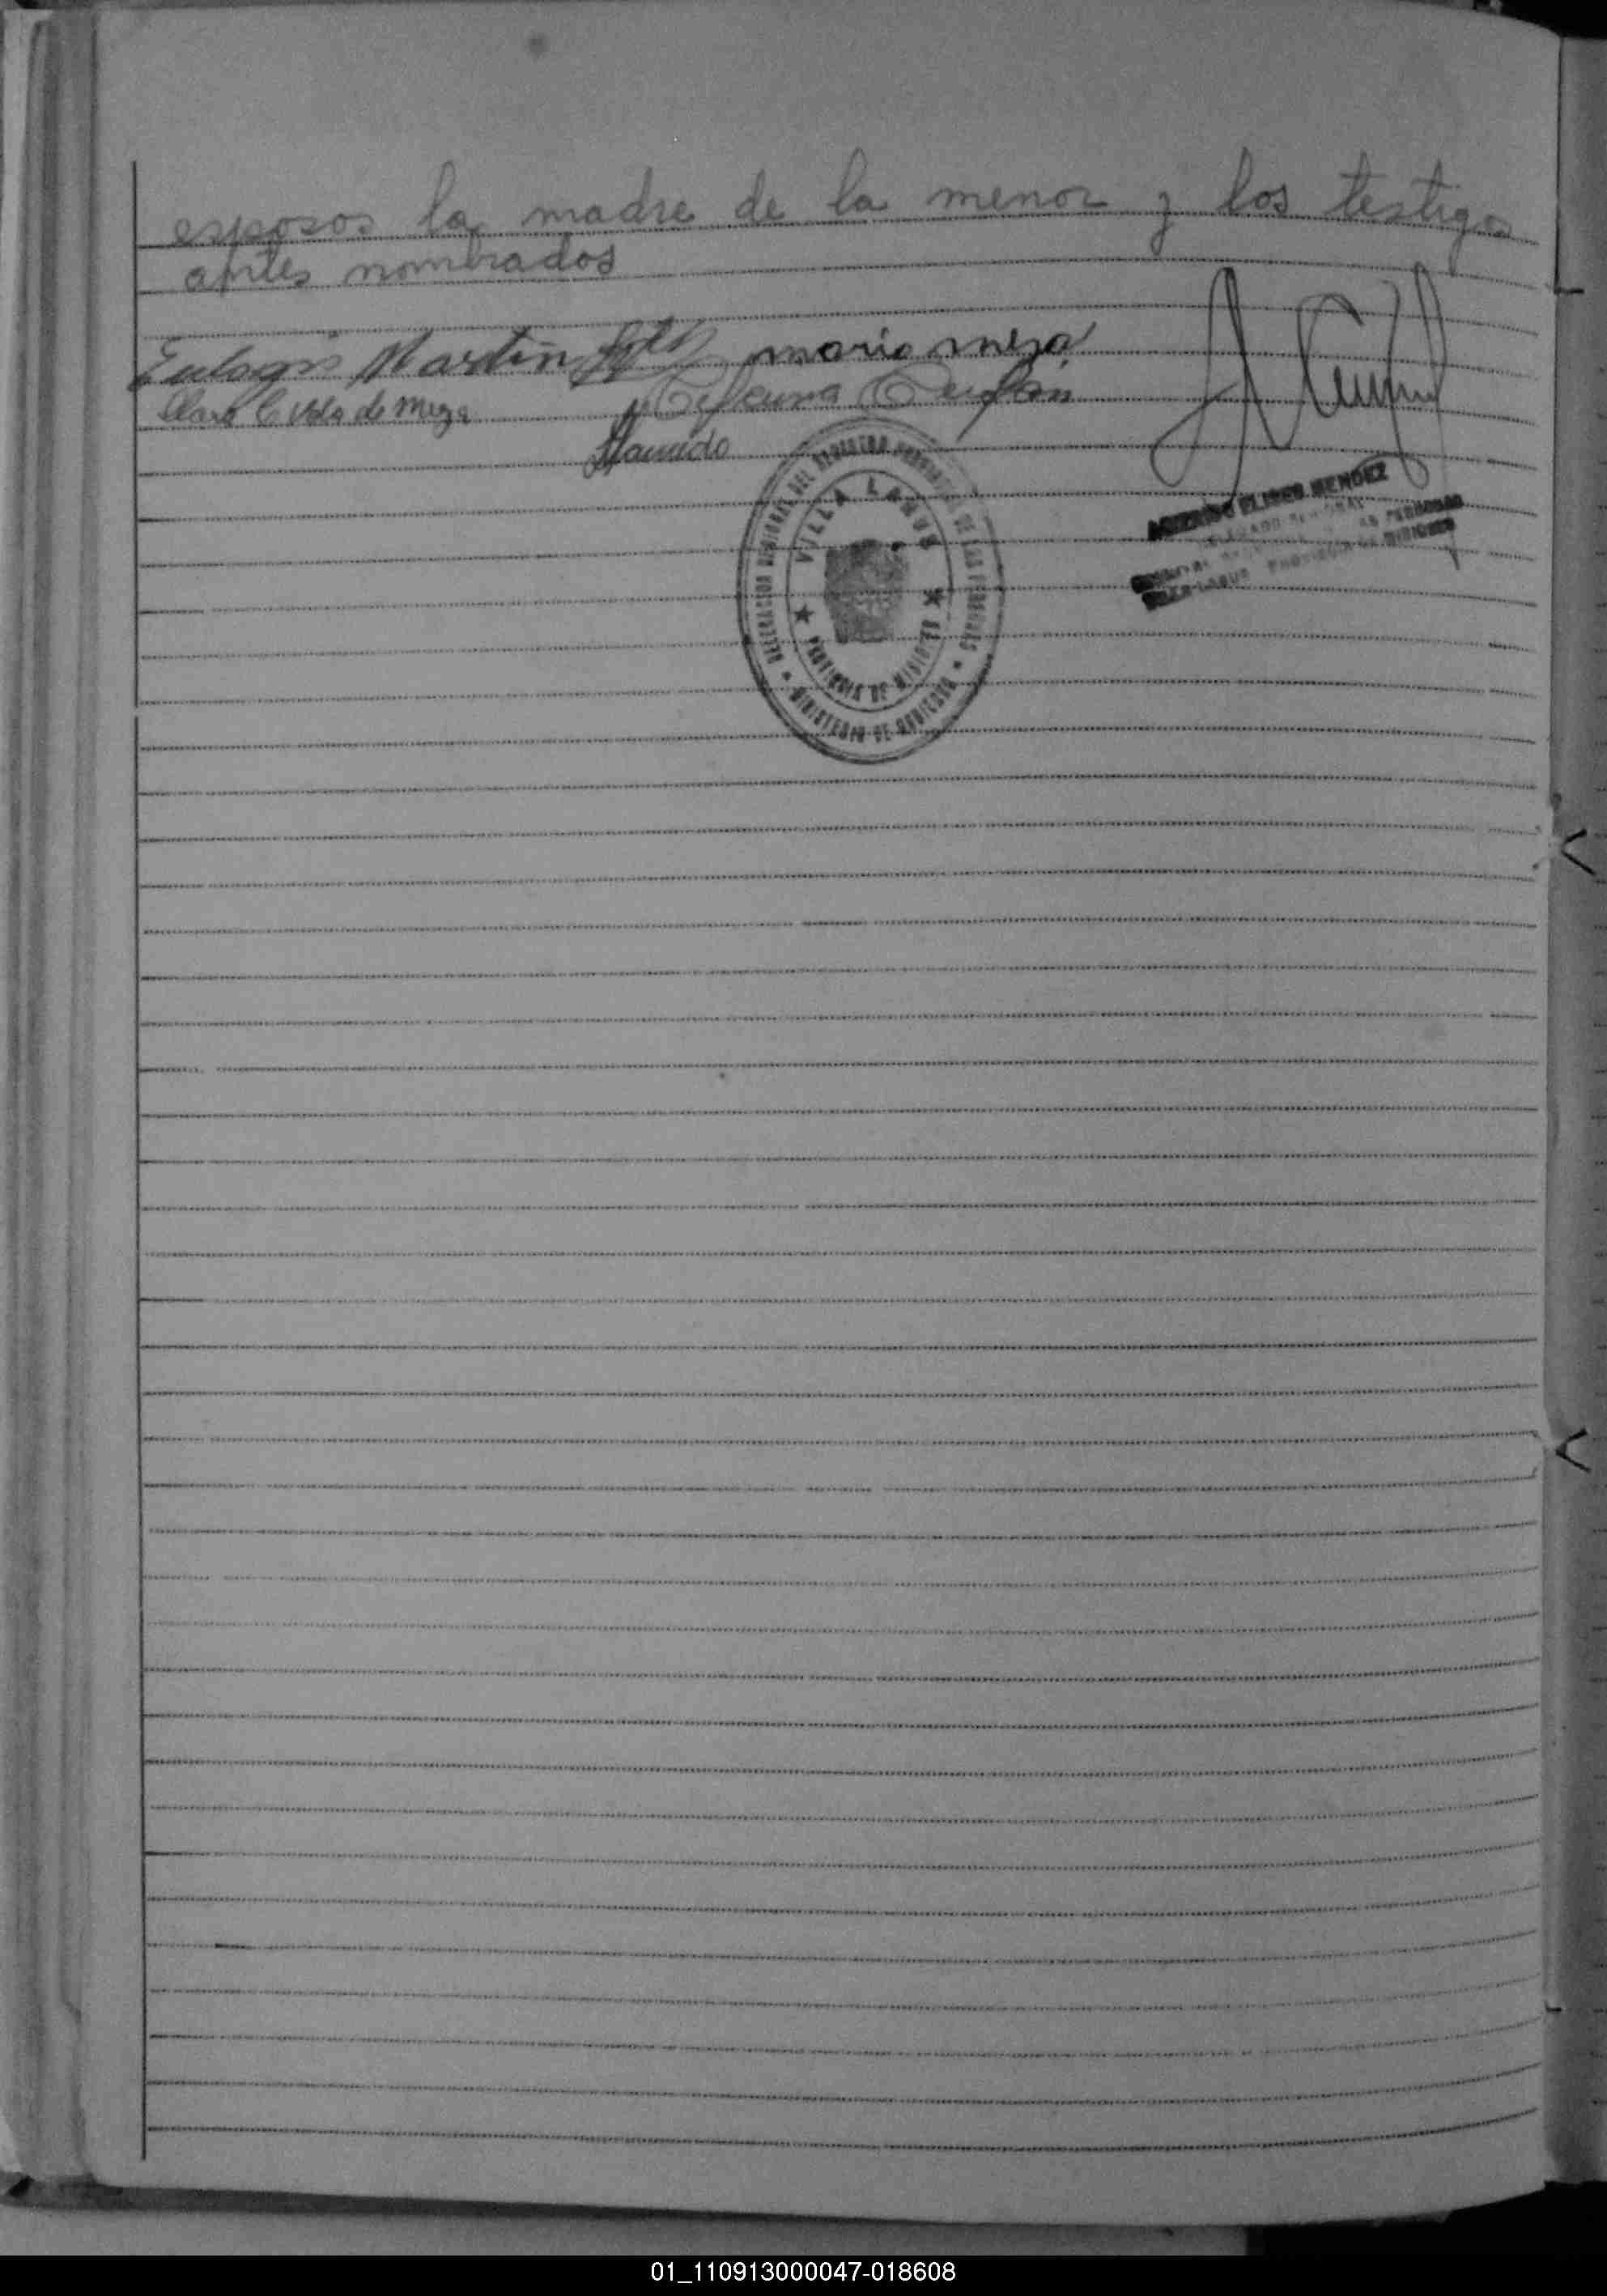 esposos la madre de la menor y los testigos
antes nombrados
Eulogio Martin maria meza
Clara C Vda de Meza
DELEGACION REGIONAL DEL REGISTRO PROVINCIAL DE LAS PERSONAS
VILLA LANUS
PROVINCIA DE MISIONES
MINISTERIO DE GOBIERNO
ELISEO MENDEZ
DE LAS PERSONAS
VILLA LANUS PROVINCIA DE MISIONES
01_110913000047-018608